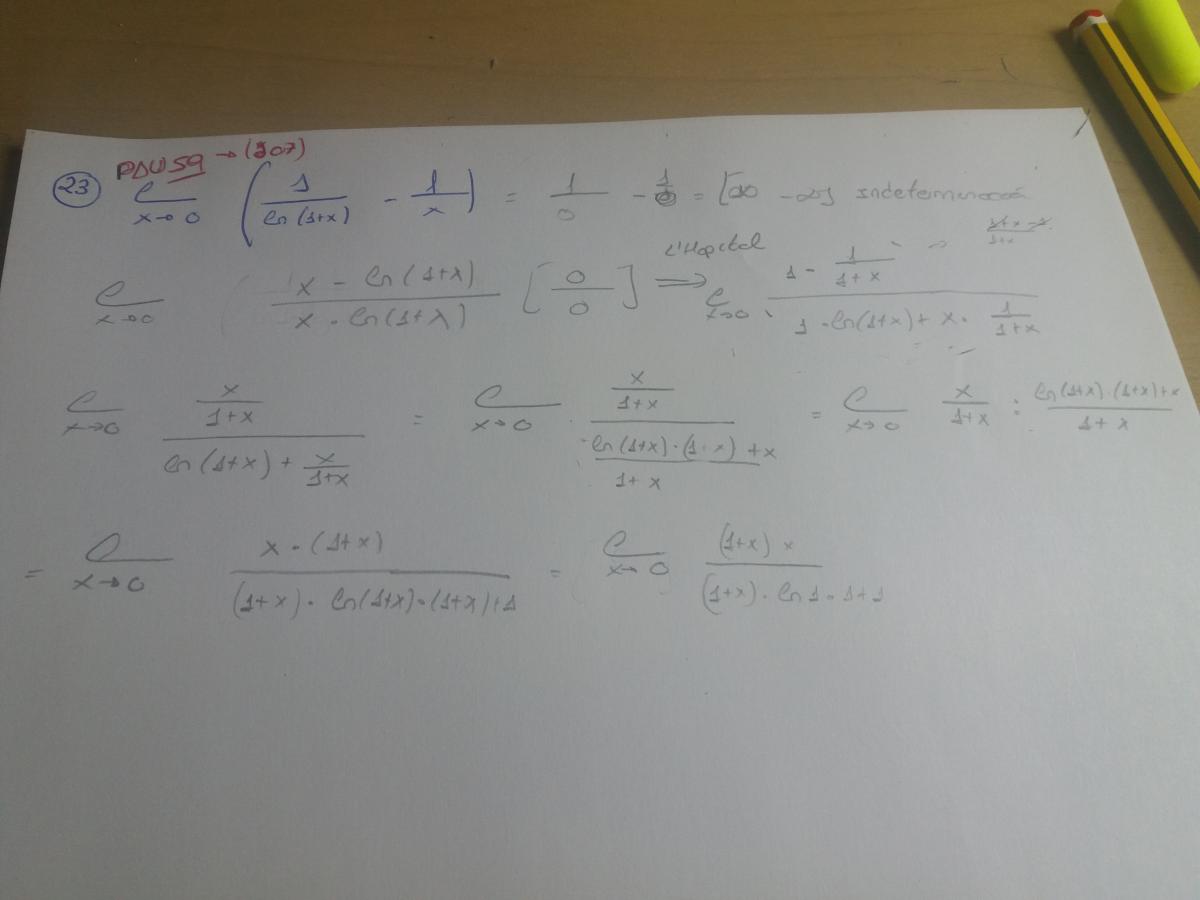 PAUS9 → (207)
23 l x→0 ( 1/ln(1+x) - 1/x ) = 1/0 - 1/0 = [∞ - ∞] Indeterminación
l x→0 x - ln(1+x) / x · ln(1+x) [ 0/0 ] L'Hopital ⇒ l x→0 1 - 1/1+x / 1 · ln(1+x) + x · 1/1+x → 1+x-1/1+x
l x→0 x/1+x / ln(1+x) + x/1+x = l x→0 x/1+x / ln(1+x)·(1+x) + x / 1+x = l x→0 x/1+x : ln(1+x)·(1+x)+x / 1+x
= l x→0 x·(1+x) / (1+x)· ln(1+x)·(1+x)+1 = l x→0 (1+x) x / (1+x)· ln 1·1+1